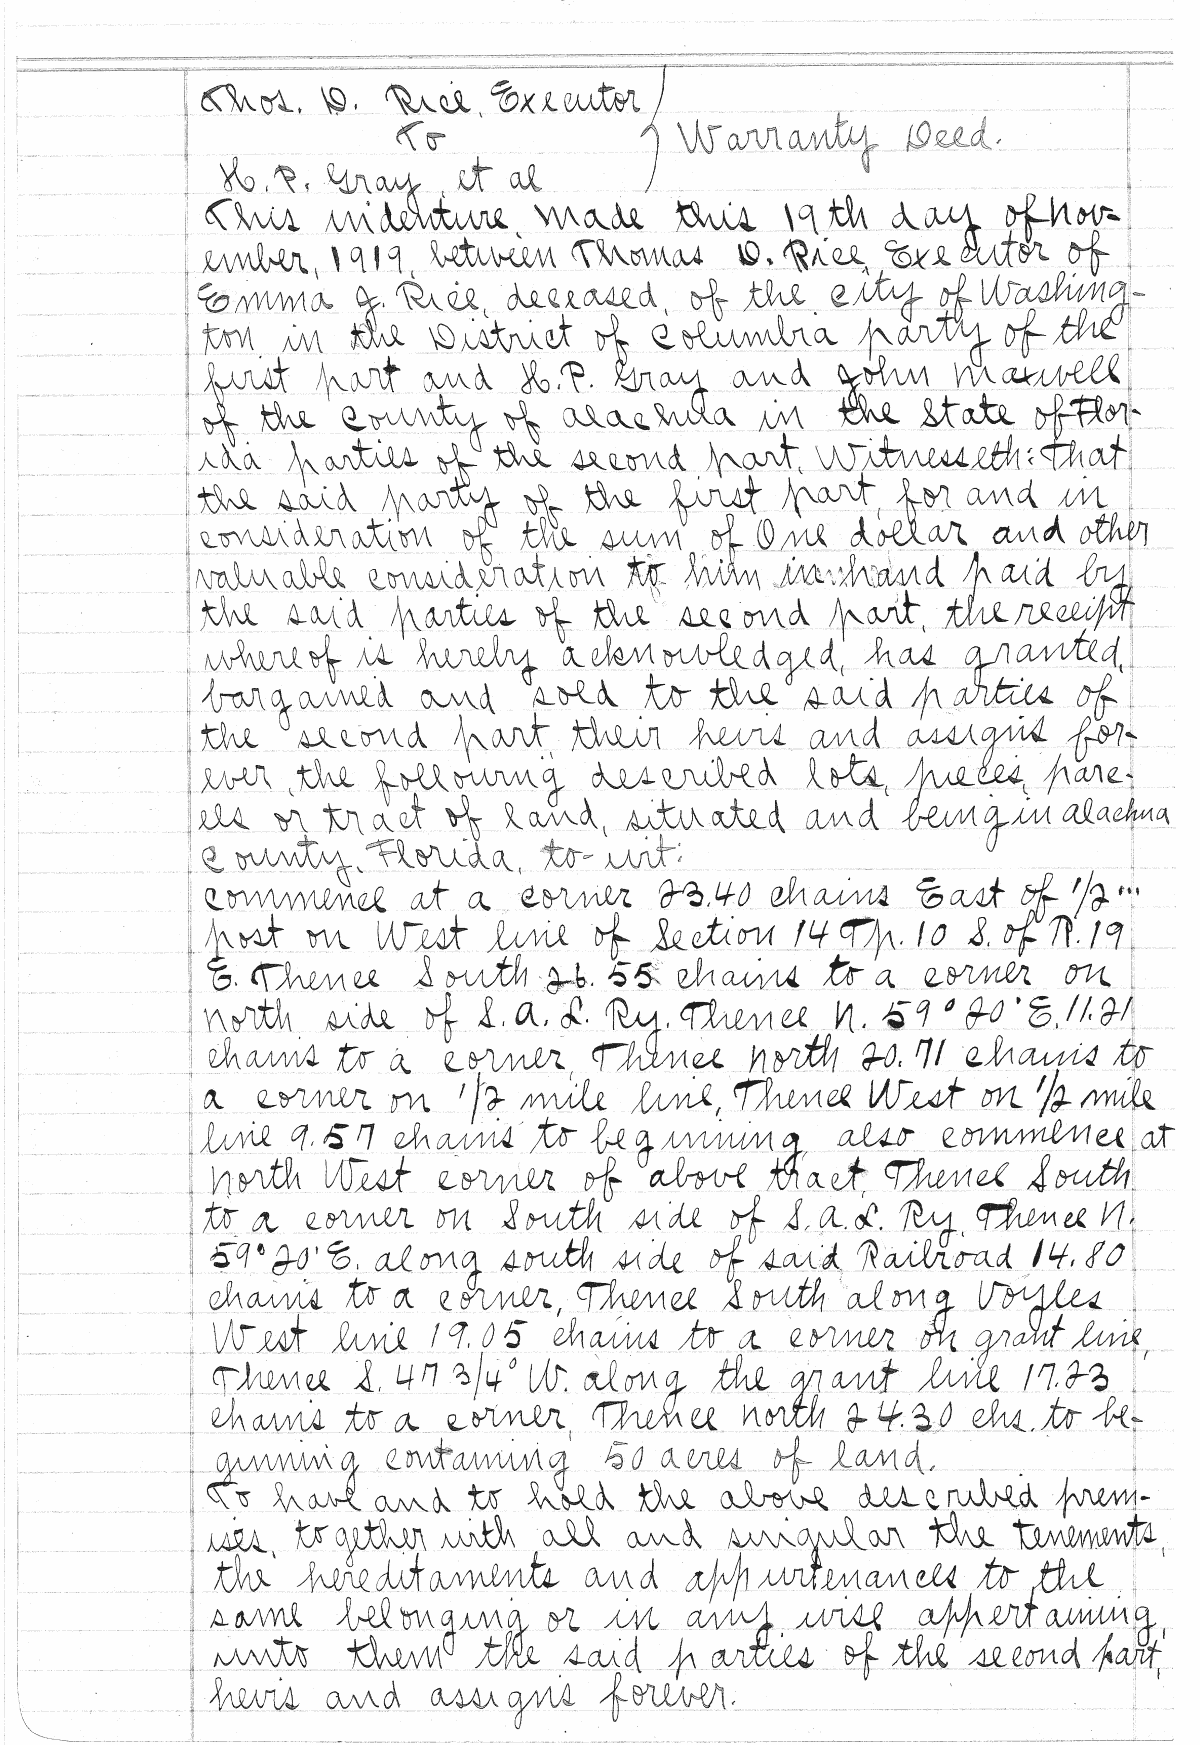 Thos. D. Rice, Executor
To
Warranty Deed.
H. P. Gray, et al
This indenture, made this 19th day of Nov-
ember, 1919, between Thomas D. Rice, Executor of
Emma J. Rice, deceased, of the city of Washing-
ton, in the District of Columbia party of the
first part and H.P. Gray and John Maxwell
of the County of Alachua in the State of Flor-
ida parties of the second part, Witnesseth: That
the said party of the first part, for and in
consideration of the sum of One dollar and other
valuable consideration to him in hand paid by
the said parties of the second part, the receipt
whereof is hereby acknowledged, has granted,
bargained and sold to the said parties of
the second part, their heirs and assigns for-
ever, the following described lots, pieces, parc-
els or tract of land, situated and being in Alachua
County, Florida, to-wit:
Commence at a corner 23.40 chains East of 1/2 "'
post on West line of Section 14 Tp. 10 S. of R. 19
E. Thence South 26.55 chains to a corner on
north side of S. A. L. Ry. Thence N. 59° 20' E. 11.21
chains to a corner, Thence north 20.71 chains to
a corner on 1/2 mile line, Thence West on 1/2 mile
line 9.57 chains to beginning, also commence at
North West corner of above tract, Thence South
to a corner on South side of S. A. L. Ry. Thence N.
59° 20' E. along south side of said Railroad 14.80
chains to a corner, Thence South along Voyles
West line 19.05 chains to a corner on grant line,
Thence S. 47 3/4° W. along the grant line 17.23
chains to a corner, Thence north 24.30 chs. to be-
ginning containing 50 acres of land.
To have and to hold the above described prem-
ises, together with all and singular the tenements,
the hereditaments and appurtenances to the
same belonging or in any wise appertaining,
unto them the said parties of the second part,
heirs and assigns forever.